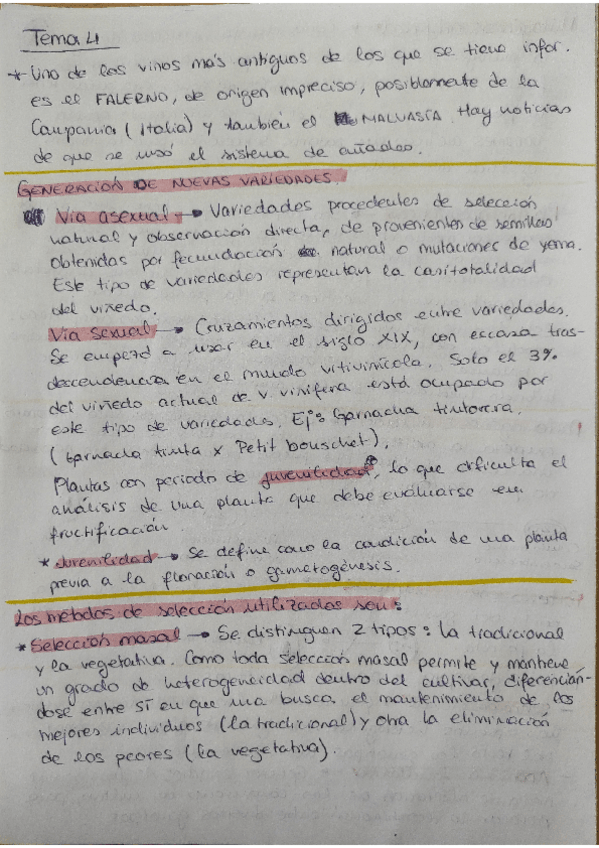 Tema 4
* Uno de los vinos más antiguos de los que se tiene infor.
es el FALERNO, de origen impreciso, posiblemente de la
Campania (Italia) y también el MALVASÍA. Hay noticias
de que se usó el sistema de añadas.
GENERACIÓN DE NUEVAS VARIEDADES.
Vía asexual → Variedades procedentes de selección
natural y observación directa, de provenientes de semillas
obtenidas por fecundación natural o mutaciones de yema.
Este tipo de variedades representan la casitotalidad
del viñedo.
Vía sexual → Cruzamientos dirigidos entre variedades.
Se empezó a usar en el siglo XIX, con escasa tras-
descendencia en el mundo vitivinícola. Solo el 3%
del viñedo actual de v. vinifera está ocupado por
este tipo de variedades. Ej: Garnacha tintorera.
(Garnacha tinta x Petit bouschet).
Plantas con periodo de juvenilidad*, lo que dificulta el
análisis de una planta que debe evaluarse en
fructificación.
* Juvenilidad → Se define como la condición de una planta
previa a la floración o gametogénesis.
Los métodos de selección utilizados son:
* Selección masal → Se distinguen 2 tipos: la tradicional
y la vegetativa. Como toda selección masal permite y mantiene
un grado de heterogeneidad dentro del cultivar, diferencian-
dose entre sí en que una busca el mantenimiento de los
mejores individuos (la tradicional) y otra la eliminación
de los peores (la vegetativa).